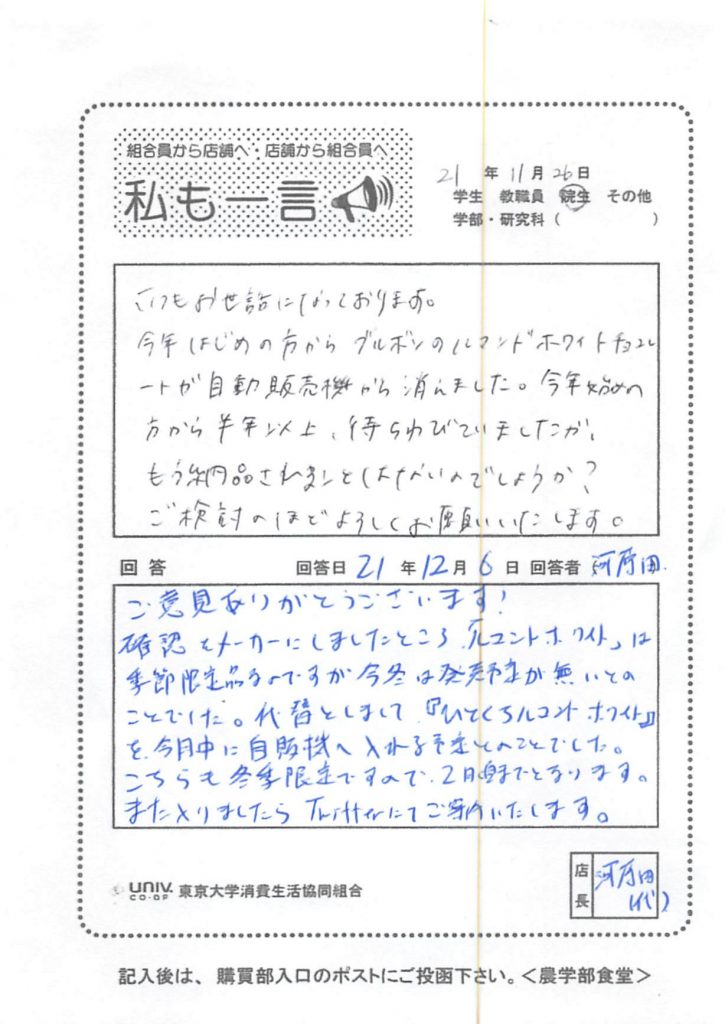 組合員から店舗へ・店舗から組合員へ
私も一言
21 年 11 月 26 日
学生 教職員 院生 その他
学部・研究科（ ）
いつもお世話になっております。
今年はじめの方から ブルボンのルマンドホワイトチョコレ
ートが自動販売機から消えました。今年始めの
方から半年以上、待ちわびていましたが、
もう納品されることはないのでしょうか？
ご検討のほどよろしくお願いいたします。
回 答 回答日 21 年 12 月 6 日 回答者 河原田
ご意見ありがとうございます!
確認をメーカーにしましたところ「ルマンドホワイト」は
季節限定品なのですが今冬は発売予定が無いとの
ことでした。代替としまして『ひとくちルマンド ホワイト』
を今月中に自販機へ入れる予定とのことでした。
こちらも冬季限定ですので、2月頃までとなります。
また入りましたら Twitterにてご案内いたします。
UNIV. CO-OP 東京大学消費生活協同組合
店長 河原田(代)
記入後は、購買部入口のポストにご投函下さい。＜農学部食堂＞